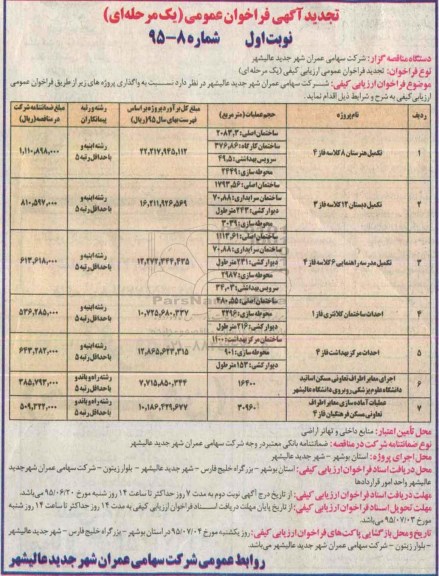 تجدید آگهی فراخوان عمومی (یک مرحله ای)
نوبت اول شماره ۸-۹۵
دستگاه مناقصه گزار: شرکت سهامی عمران شهر جدید عالیشهر
نوع فراخوان: تجدید فراخوان عمومی ارزیابی کیفی (یک مرحله ای)
موضوع فراخوان ارزیابی کیفی: شرکت سهامی عمران شهر جدید عالیشهر در نظر دارد نسبت به واگذاری پروژه های زیر از طریق فراخوان عمومی
ارزیابی کیفی به شرح و شرایط ذیل اقدام نماید.
ردیف نام پروژه حجم عملیات (متر مربع) مبلغ کل برآورد پروژه بر اساس فهرست بهای سال ۹۵ (ریال) رشته و رتبه پیمانکاران مبلغ ضمانتنامه شرکت در مناقصه (ریال)
۱ تکمیل هنرستان ۸ کلاسه فاز ۴ ساختمان اصلی: ۲۰۸۳,۳ ۲۲,۲۱۷,۹۴۵,۱۱۲ رشته ابنیه و با حداقل رتبه ۵ ۱,۱۱۰,۸۹۸,۰۰۰
ساختمان کارگاه: ۳۷۶,۸۶
سرویس بهداشتی: ۴۹,۵
محوطه سازی: ۲۴۴۹
۲ تکمیل دبستان ۱۲ کلاسه فاز ۲ ساختمان اصلی: ۱۷۹۳,۵۶ ۱۶,۲۱۱,۹۲۶,۵۶۹ رشته ابنیه و با حداقل رتبه ۵ ۸۱۰,۵۹۷,۰۰۰
ساختمان سرایداری: ۷۰,۸۸
دیوار کشی: ۲۴۳ متر طول
محوطه سازی: ۳۰۳۹
۳ تکمیل مدرسه راهنمایی ۶ کلاسه فاز ۴ ساختمان اصلی: ۱۱۱۳,۶۱ ۱۲,۲۷۲,۳۴۴,۴۳۵ رشته ابنیه و با حداقل رتبه ۵ ۶۱۳,۶۱۸,۰۰۰
ساختمان سرایداری: ۷۰,۸۸
دیوار کشی: ۲۳۱ متر طول
محوطه سازی: ۲۹۸۷
سرویس بهداشتی: ۳۴,۰۳
۴ احداث ساختمان کلانتری فاز ۱ ساختمان اصلی: ۴۸۰,۵۵ ۱۰,۷۲۵,۶۸۰,۳۳۷ رشته ابنیه و با حداقل رتبه ۵ ۵۳۶,۲۸۵,۰۰۰
محوطه سازی: ۲۲۹۶
دیوار کشی: ۲۱۶ متر طول
۵ احداث مرکز بهداشت فاز ۴ ساختمان مرکز بهداشت: ۱۱۰۰ ۱۲,۸۶۵,۶۴۳,۳۱۵ رشته ابنیه و با حداقل رتبه ۵ ۶۴۳,۲۸۲,۰۰۰
محوطه سازی: ۹۰۱
دیوار کشی: ۱۵۳ متر طول
۶ اجرای معابر اطراف تعاونی مسکن اساتید دانشگاه علوم پزشکی روبروی دانشگاه عالیشهر ۱۶۴۰۰ ۷,۷۱۵,۸۵۰,۳۴۴ رشته راه و باند و با حداقل رتبه ۵ ۳۸۵,۷۹۲,۰۰۰
۷ عملیات آماده سازی معابر اطراف تعاونی مسکن فرهنگیان فاز ۴ ۳۰۹۶۰ ۱۰,۱۸۶,۴۳۹,۶۷۷ رشته راه و باند و با حداقل رتبه ۵ ۵۰۹,۳۲۲,۰۰۰
محل تأمین اعتبار: منابع داخلی و تهاتر اراضی
نوع ضمانتنامه شرکت در مناقصه: ضمانتنامه بانکی معتبر در وجه شرکت سهامی عمران شهر جدید عالیشهر
محل اجرای پروژه: استان بوشهر - شهر جدید عالیشهر
محل دریافت اسناد فراخوان ارزیابی کیفی: استان بوشهر - بزرگراه خلیج فارس - شهر جدید عالیشهر - بلوار زیتون - شرکت سهامی عمران شهر جدید
عالیشهر واحد امور قراردادها
مهلت دریافت اسناد فراخوان ارزیابی کیفی: از تاریخ درج آگهی نوبت دوم به مدت ۷ روز حداکثر تا ساعت ۱۴ روز شنبه مورخ ۹۵/۰۶/۲۰ می باشد.
مهلت تحویل اسناد فراخوان ارزیابی کیفی: از تاریخ پایان مهلت دریافت اسناد فراخوان ارزیابی کیفی به مدت ۱۴ روز حداکثر تا ساعت ۱۴ روز شنبه
مورخ ۹۵/۰۷/۰۳ می باشد.
تاریخ و محل بازگشایی پاکت های فراخوان ارزیابی کیفی: روز یکشنبه مورخ ۹۵/۰۷/۰۴ در استان بوشهر - بزرگراه خلیج فارس - شهر جدید عالیشهر
- بلوار زیتون - شرکت سهامی عمران شهر جدید عالیشهر می باشد.
روابط عمومی شرکت سهامی عمران شهر جدید عالیشهر